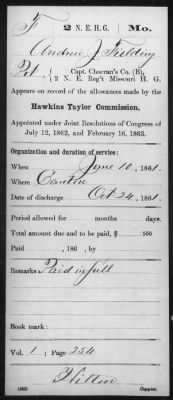 F | 2 N.E.H.G. | Mo.
Andrew J. Fielding
Pvt, Capt. Chocran's Co. (B),
2 N. E. Reg't Missouri H. G.
Appears on record of the allowances made by the
Hawkins Taylor Commission,
Appointed under Joint Resolutions of Congress of
July 12, 1862, and February 16, 1863.
Organization and duration of service:
When June 10, 1861.
Where Canton
Date of discharge Oct 24, 1861.
Period allowed for months days.
Total amount due and to be paid, $ 100
Paid , 186 , by
Remarks Paid in full
Book mark:
Vol. 1; Page 254
Hilton
Copyist.